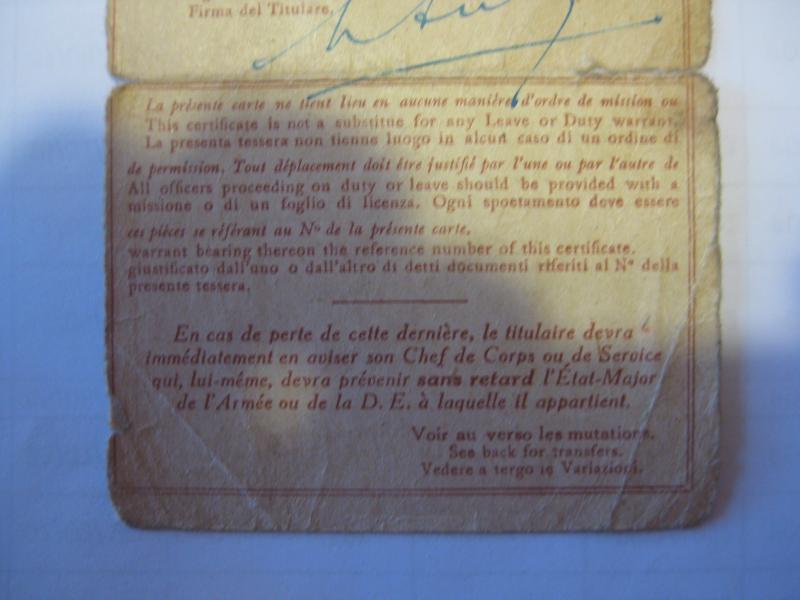 Firma del Titulare,
La présente carte ne tient lieu en aucune manière d'ordre de mission ou
This certificate is not a substitue for any Leave or Duty warrant.
La presenta tessera non tienne luogo in alcun caso di un ordine di
de permission. Tout déplacement doit être justifié par l'une ou par l'autre de
All officers proceeding on duty or leave should be provided with a
missione o di un foglio di licenza. Ogni spoetamento deve essere
ces pièces se référant au Nº de la présente carte.
warrant bearing thereon the reference number of this certificate.
giustificato dall'uno o dall'altro di detti documenti riferiti al Nº della
presente tessera.
En cas de perte de cette dernière, le titulaire devra
immédiatement en aviser son Chef de Corps ou de Service
qui, lui-même, devra prévenir sans retard l'État-Major
de l'Armée ou de la D. E. à laquelle il appartient.
Voir au verso les mutations.
See back for transfers.
Vedere a tergo le Variazioni.